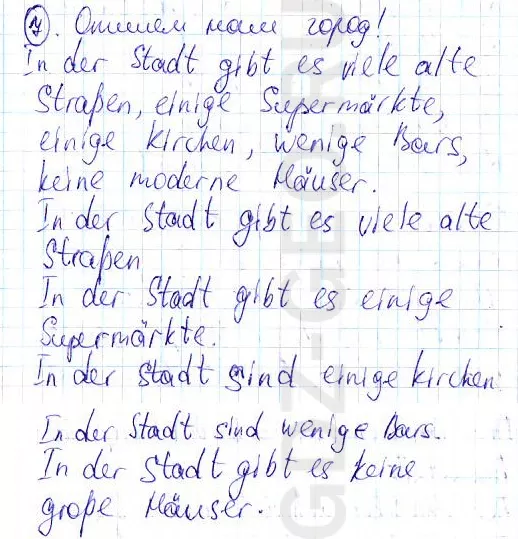 7. Опишем наш город!
In der Stadt gibt es viele alte
Straßen, einige Supermärkte,
einige Kirchen, wenige Bars,
keine moderne Häuser.
In der Stadt gibt es viele alte
Straßen
In der Stadt gibt es einige
Supermärkte.
In der Stadt sind einige Kirchen
In der Stadt sind wenige Bars.
In der Stadt gibt es keine
große Häuser.
GDZ-GEO.RU